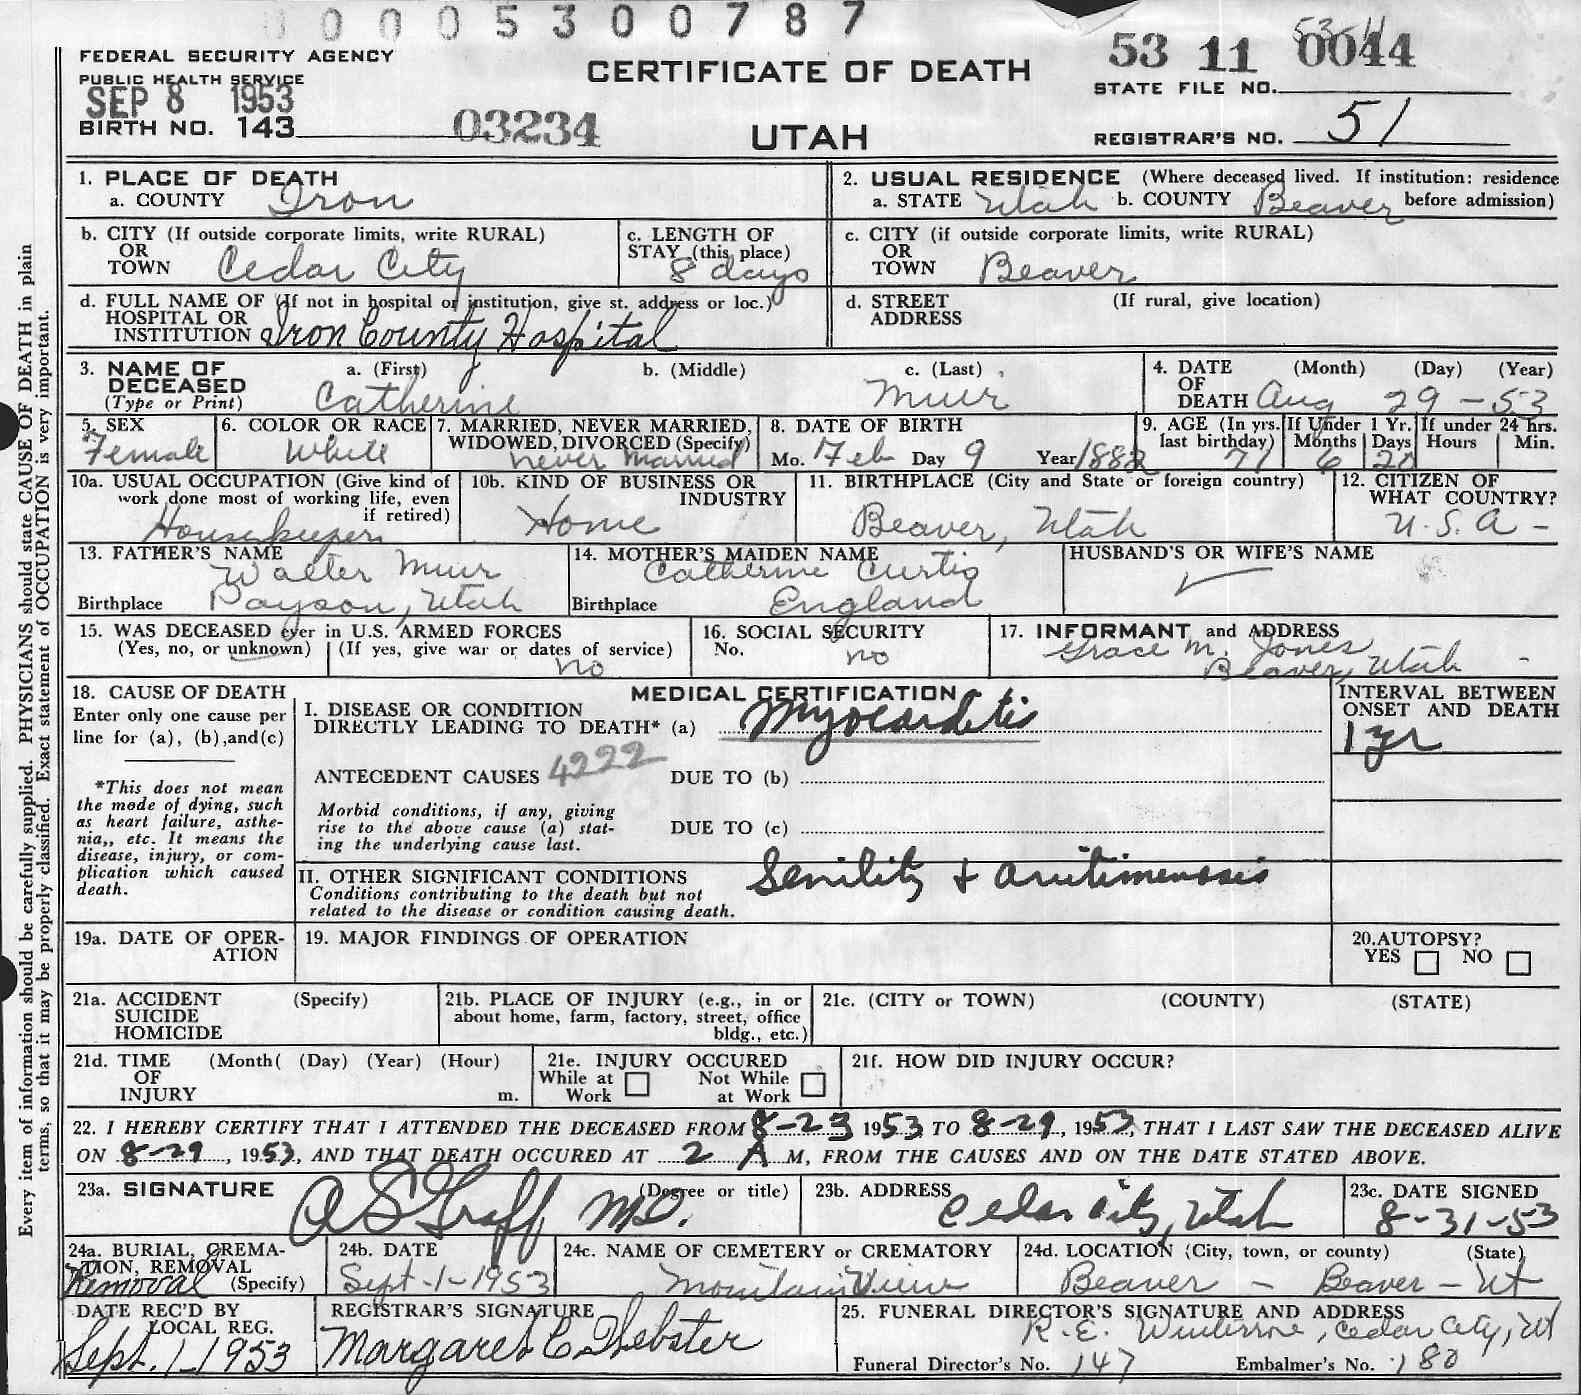 0 0 0 0 5 3 0 0 7 8 7
FEDERAL SECURITY AGENCY
PUBLIC HEALTH SERVICE
SEP 8 1953
BIRTH NO. 143
03234
CERTIFICATE OF DEATH
UTAH
53-11
53 11 0044
STATE FILE NO.
REGISTRAR'S NO. 51
Every item of information should be carefully supplied. PHYSICIANS should state CAUSE OF DEATH in plain
terms, so that it may be properly classified. Exact statement of OCCUPATION is very important.
1. PLACE OF DEATH
a. COUNTY Iron
2. USUAL RESIDENCE (Where deceased lived. If institution: residence
a. STATE Utah b. COUNTY Beaver before admission)
b. CITY (If outside corporate limits, write RURAL)
OR
TOWN Cedar City
c. LENGTH OF
STAY (this place)
8 days
c. CITY (if outside corporate limits, write RURAL)
OR
TOWN Beaver
d. FULL NAME OF (If not in hospital or institution, give st. address or loc.)
HOSPITAL OR
INSTITUTION Iron County Hospital
d. STREET (If rural, give location)
ADDRESS
3. NAME OF a. (First) b. (Middle) c. (Last)
DECEASED
(Type or Print) Catherine Muir
4. DATE (Month) (Day) (Year)
OF
DEATH Aug 29 - 53
5. SEX
Female
6. COLOR OR RACE
White
7. MARRIED, NEVER MARRIED,
WIDOWED, DIVORCED (Specify)
Never Married
8. DATE OF BIRTH
Mo. Feb Day 9 Year 1882
9. AGE (In yrs. last birthday)
71
If Under 1 Yr.
Months Days
6 20
If under 24 hrs.
Hours Min.
10a. USUAL OCCUPATION (Give kind of
work done most of working life, even
if retired)
Housekeeper
10b. KIND OF BUSINESS OR
INDUSTRY
Home
11. BIRTHPLACE (City and State or foreign country)
Beaver, Utah
12. CITIZEN OF
WHAT COUNTRY?
U.S.A -
13. FATHER'S NAME
Walter Muir
Birthplace Payson, Utah
14. MOTHER'S MAIDEN NAME
Catherine Curtis
Birthplace England
HUSBAND'S OR WIFE'S NAME
15. WAS DECEASED ever in U.S. ARMED FORCES
(Yes, no, or unknown) (If yes, give war or dates of service)
no
16. SOCIAL SECURITY
No. no
17. INFORMANT and ADDRESS
Grace M. Jones
Beaver, Utah -
18. CAUSE OF DEATH
Enter only one cause per
line for (a), (b),and(c)
*This does not mean
the mode of dying, such
as heart failure, asthe-
nia,, etc. It means the
disease, injury, or com-
plication which caused
death.
MEDICAL CERTIFICATION
I. DISEASE OR CONDITION
DIRECTLY LEADING TO DEATH* (a) Myocarditis
ANTECEDENT CAUSES 4222 DUE TO (b)
Morbid conditions, if any, giving
rise to the above cause (a) stat-
ing the underlying cause last.
DUE TO (c)
II. OTHER SIGNIFICANT CONDITIONS
Conditions contributing to the death but not
related to the disease or condition causing death.
Senility +
INTERVAL BETWEEN
ONSET AND DEATH
1 yr
19a. DATE OF OPER-
ATION
19. MAJOR FINDINGS OF OPERATION
20.AUTOPSY?
YES NO
21a. ACCIDENT (Specify)
SUICIDE
HOMICIDE
21b. PLACE OF INJURY (e.g., in or
about home, farm, factory, street, office
bldg., etc.)
21c. (CITY or TOWN) (COUNTY) (STATE)
21d. TIME (Month( (Day) (Year) (Hour)
OF
INJURY m.
21e. INJURY OCCURED
While at Work Not While at Work
21f. HOW DID INJURY OCCUR?
22. I HEREBY CERTIFY THAT I ATTENDED THE DECEASED FROM 8-23 1953 TO 8-29, 1953, THAT I LAST SAW THE DECEASED ALIVE
ON 8-29, 1953, AND THAT DEATH OCCURED AT 2 A M, FROM THE CAUSES AND ON THE DATE STATED ABOVE.
23a. SIGNATURE (Degree or title)
Graff M.D.
23b. ADDRESS
Cedar City, Utah
23c. DATE SIGNED
8-31-53
24a. BURIAL, CREMA-
TION, REMOVAL
Removal (Specify)
24b. DATE
Sept-1-1953
24c. NAME OF CEMETERY or CREMATORY
Mountain View
24d. LOCATION (City, town, or county) (State)
Beaver - Beaver - Ut
DATE REC'D BY
LOCAL REG.
Sept. 1-1953
REGISTRAR'S SIGNATURE
Margaret C. Webster
25. FUNERAL DIRECTOR'S SIGNATURE AND ADDRESS
R. E. Cedar City, Ut
Funeral Director's No. 147 Embalmer's No. 180